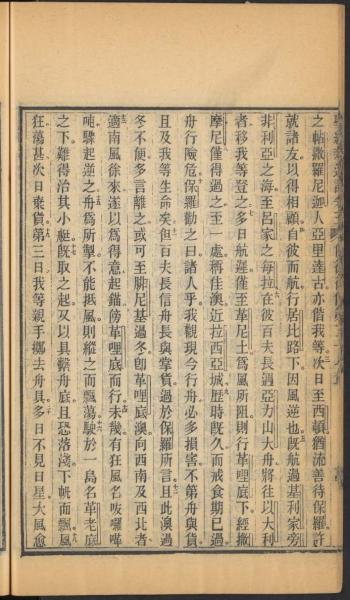 之帖撒羅尼迦人亞里達古亦偕我等次日至西頓猶流善待保羅許
就諸友以得相顧自彼而航行居比路下因風逆也旣航過基利家旁
非利亞之海至呂家之每拉在彼百夫長遇亞力山大舟將往以大利
者移我等登之多日航遲僅至革尼土爲風所阻則行革哩底下經撒
摩尼僅得過之至一處稱佳澳近拉西亞城歷時旣久而戒食期已過
舟行險危保羅勸之曰諸人乎我觀現今行舟必多損害不第舟與貨
且及我等生命矣但百夫長信舟長與掌貨過於保羅所言且此澳過
冬不便多言離之或可至腓尼基過冬卽革哩底澳向西南及西北者
適南風徐來遂以爲得意起錨傍革哩底而行未幾有狂風名囉嘩
驟起逆之舟爲所擊不能抵風則縱之而飄蕩駛於一島名革老底
之下難得治其小艇旣取之起又以具繫舟底且恐落淺下帆而飄風
狂蕩甚次日棄貨第三日我等親手擲去舟具多日不見日星大風愈